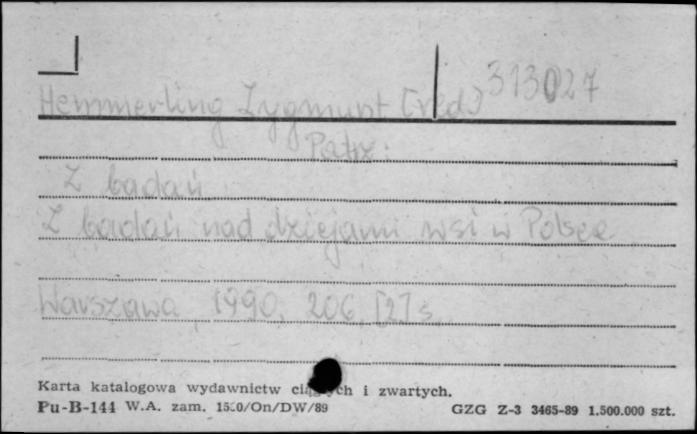 313027
Hemmerling Zygmunt (red.)
Patrz:
Z badań
Z badań nad dziejami wsi w Polsce
Warszawa, 1990, 206, [2] s.
Karta katalogowa wydawnictw ciągłych i zwartych.
Pu-B-144 W.A. zam. /On/DW/89 GZG Z-3 3465-89 1.500.000 szt.